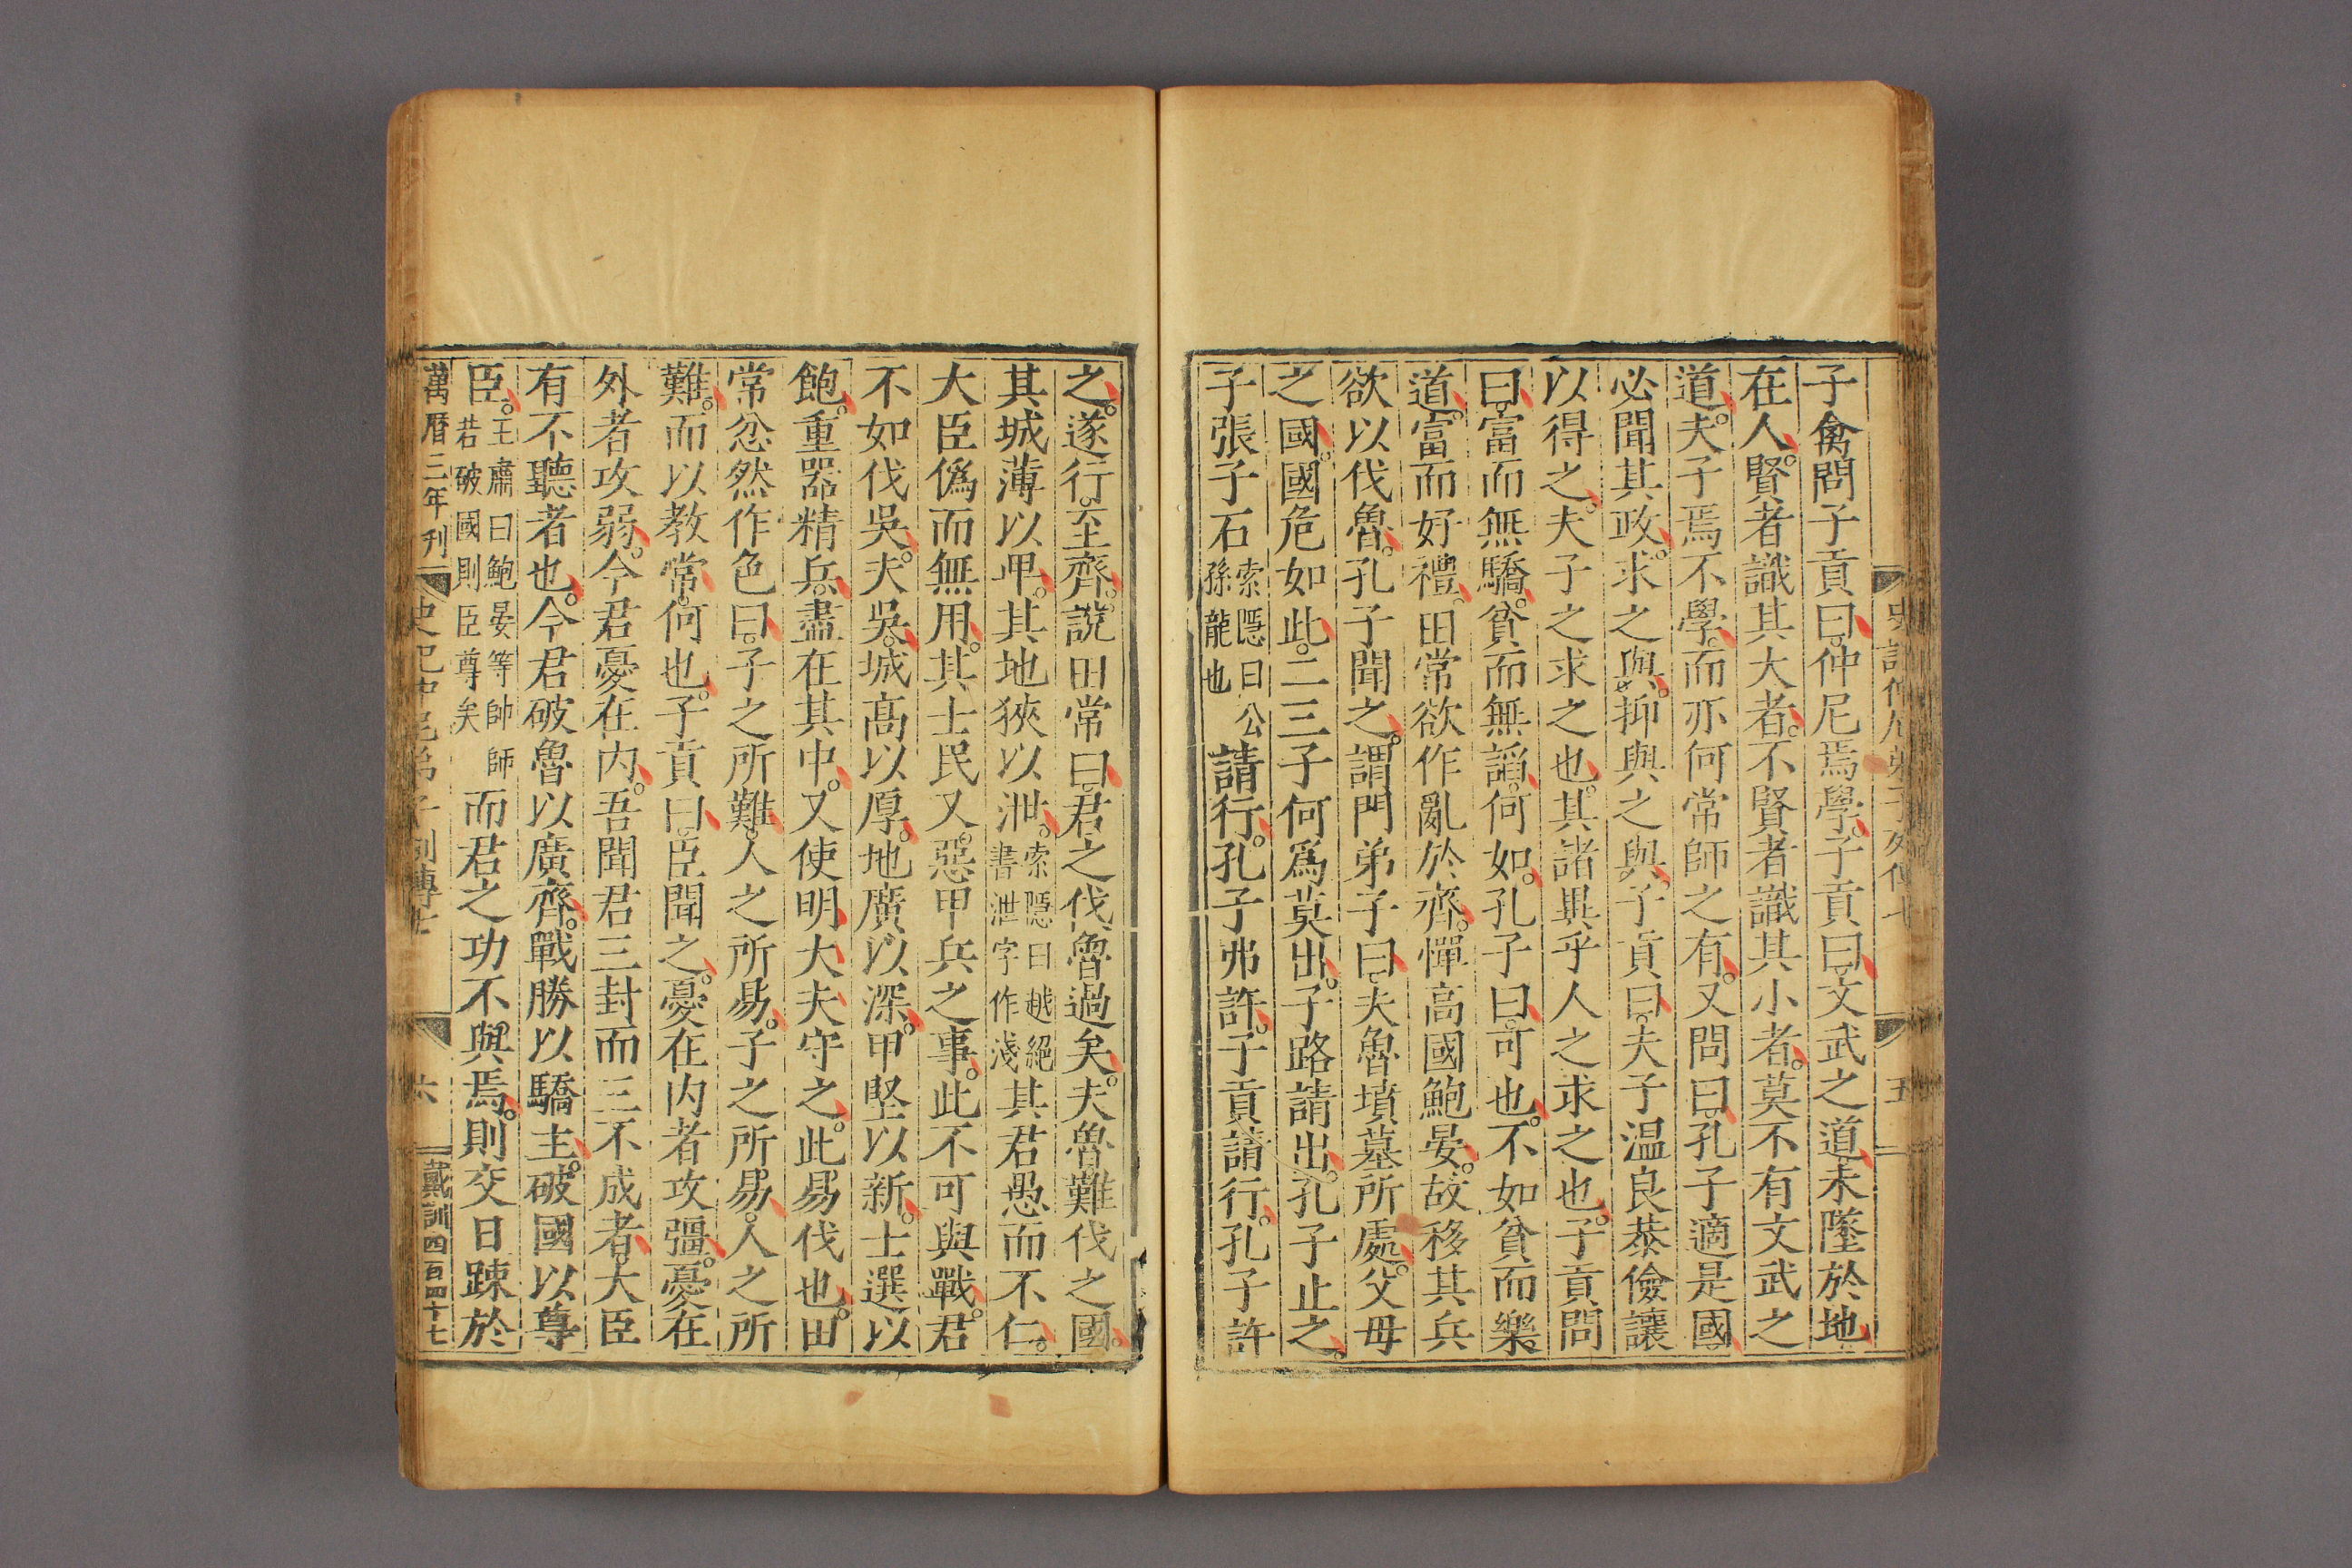 史記仲尼弟子列傳七
五
子禽問子貢曰仲尼焉學子貢曰文武之道未墜於地
在人賢者識其大者不賢者識其小者莫不有文武之
道夫子焉不學而亦何常師之有又問曰孔子適是國
必聞其政求之與抑與之與子貢曰夫子温良恭儉讓
以得之夫子之求之也其諸異乎人之求之也子貢問
曰富而無驕貧而無諂何如孔子曰可也不如貧而樂
道富而好禮田常欲作亂於齊憚高國鮑晏故移其兵
欲以伐魯孔子聞之謂門弟子曰夫魯墳墓所處父母
之國國危如此二三子何爲莫出子路請出孔子止之
子張子石
索隱曰公
孫龍也
請行孔子弗許子貢請行孔子許
之遂行至齊說田常曰君之伐魯過矣夫魯難伐之國
其城薄以卑其地狹以泄
索隱曰越絕
書泄字作淺
其君愚而不仁
大臣僞而無用其士民又惡甲兵之事此不可與戰君
不如伐吳夫吳城高以厚地廣以深甲堅以新士選以
飽重器精兵盡在其中又使明大夫守之此易伐也田
常忿然作色曰子之所難人之所易子之所易人之所
難而以教常何也子貢曰臣聞之憂在内者攻彊憂在
外者攻弱今君憂在内吾聞君三封而三不成者大臣
有不聽者也今君破魯以廣齊戰勝以驕主破國以尊
臣
王肅曰鮑晏等帥師
若破國則臣尊矣
而君之功不與焉則交日踈於
萬曆三年刋
史記仲尼弟子列傳七
六
戴訓四百四十七